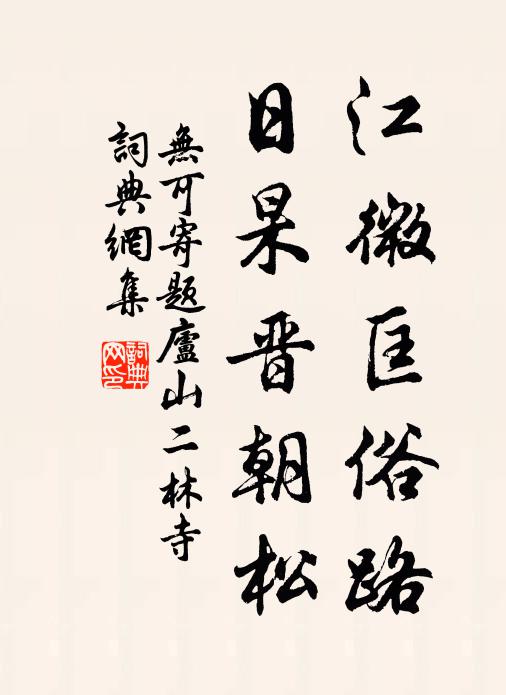 江微匡俗路
日杲晋朝松
無可寄题廬山二林寺
詞典網集
詞典网印